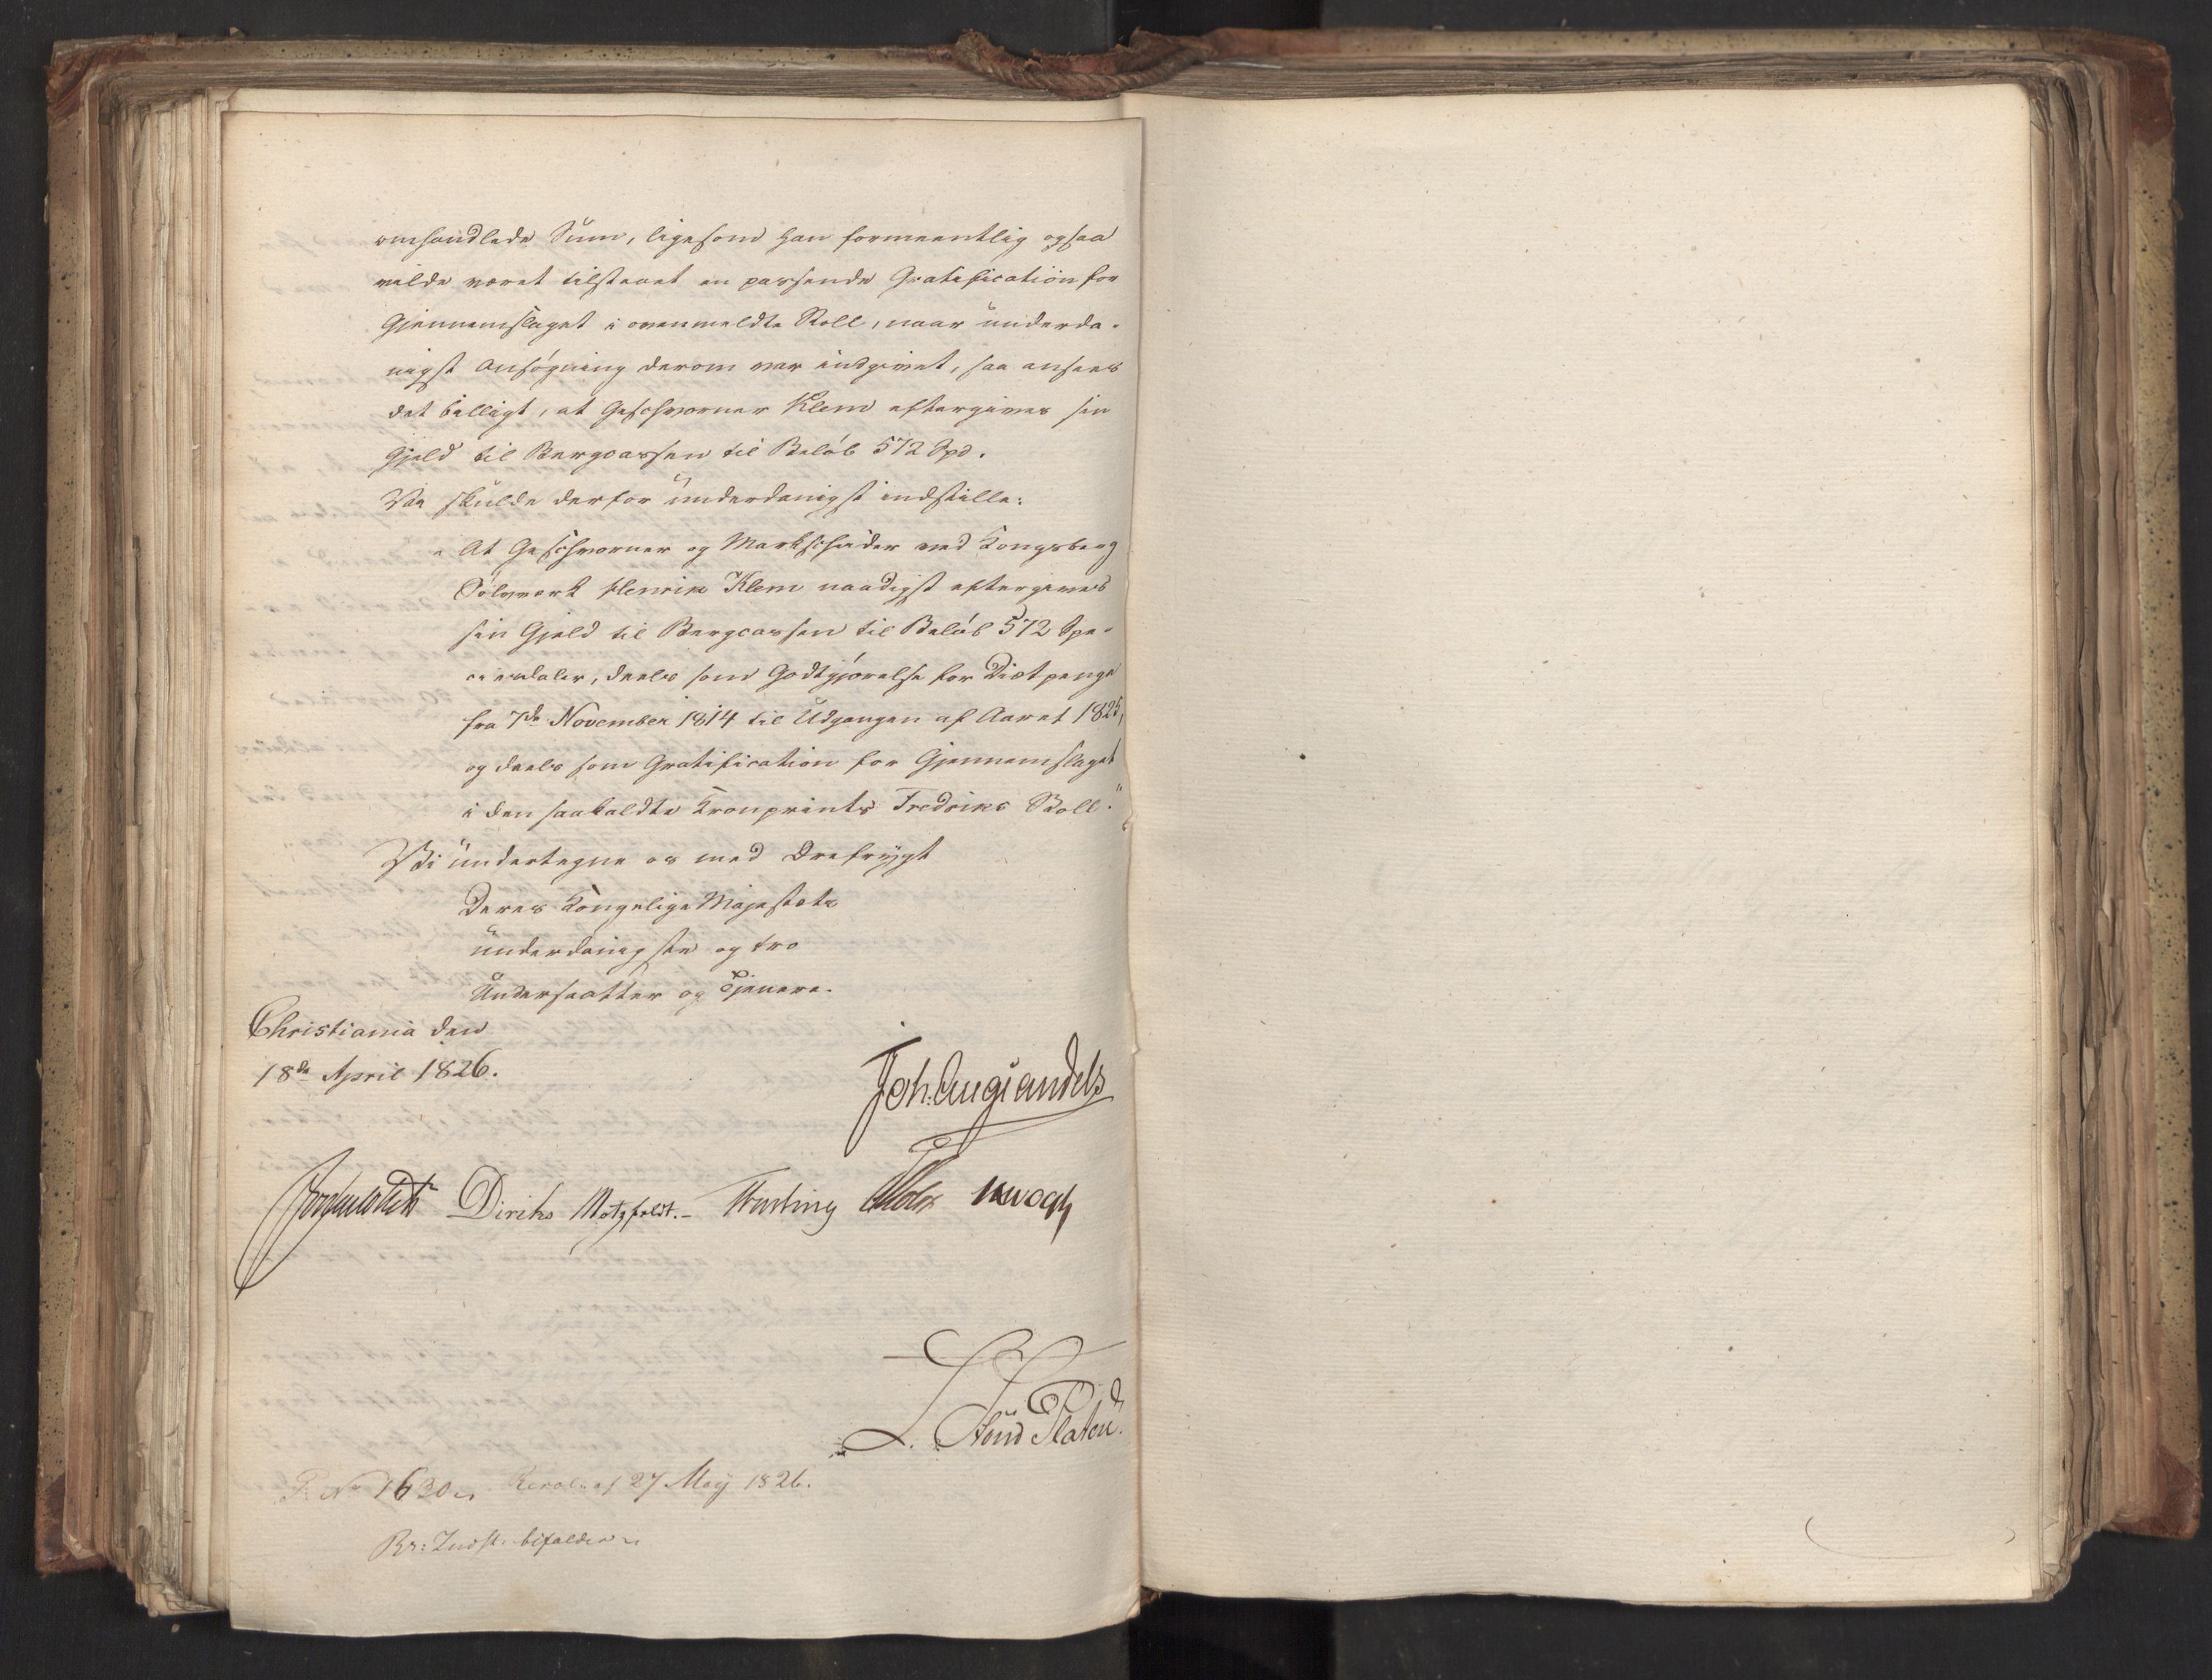 omhandlede Sum, ligesom han formeentlig ogsaa
vilde været tilstaaet en passende Gratification for
Gjennemslaget i ovenmeldte Stoll, naar underda-
nigst Ansøgning derom var indgivet, saa ansees
det billigt, at Geschworner Klem eftergives sin
Gjeld til Bergcassen til Beløb 572 Spd.
Vi skulde derfor underdanigst indstille:
"At Geschworner og Markscheider ved Kongsberg
Sølvverk Henrik Klem naadigst eftergives
sin Gjeld til Bergcassen til Beløb 572 Spe-
ciesdaler, deels som Godtgjørelse for Diætpenge
fra 7de November 1814 til Udgangen af Aaret 1825,
og deels som Gratification for Gjennemslaget
i den saakaldte Kronprints Fredriks Stoll."
Vi undertegne os med Ærefrygt
Deres Kongelige Majestæts
underdanigste og tro
Undersaatter og Tjenere.
Christiania den
18de April 1826.
Joh: Aug: Sandels
Diriks Motzfeldt.-
L. v. Platen.
P. No 1630. Resol. af 27 May 1826.
Rs: Indst. bifaldes